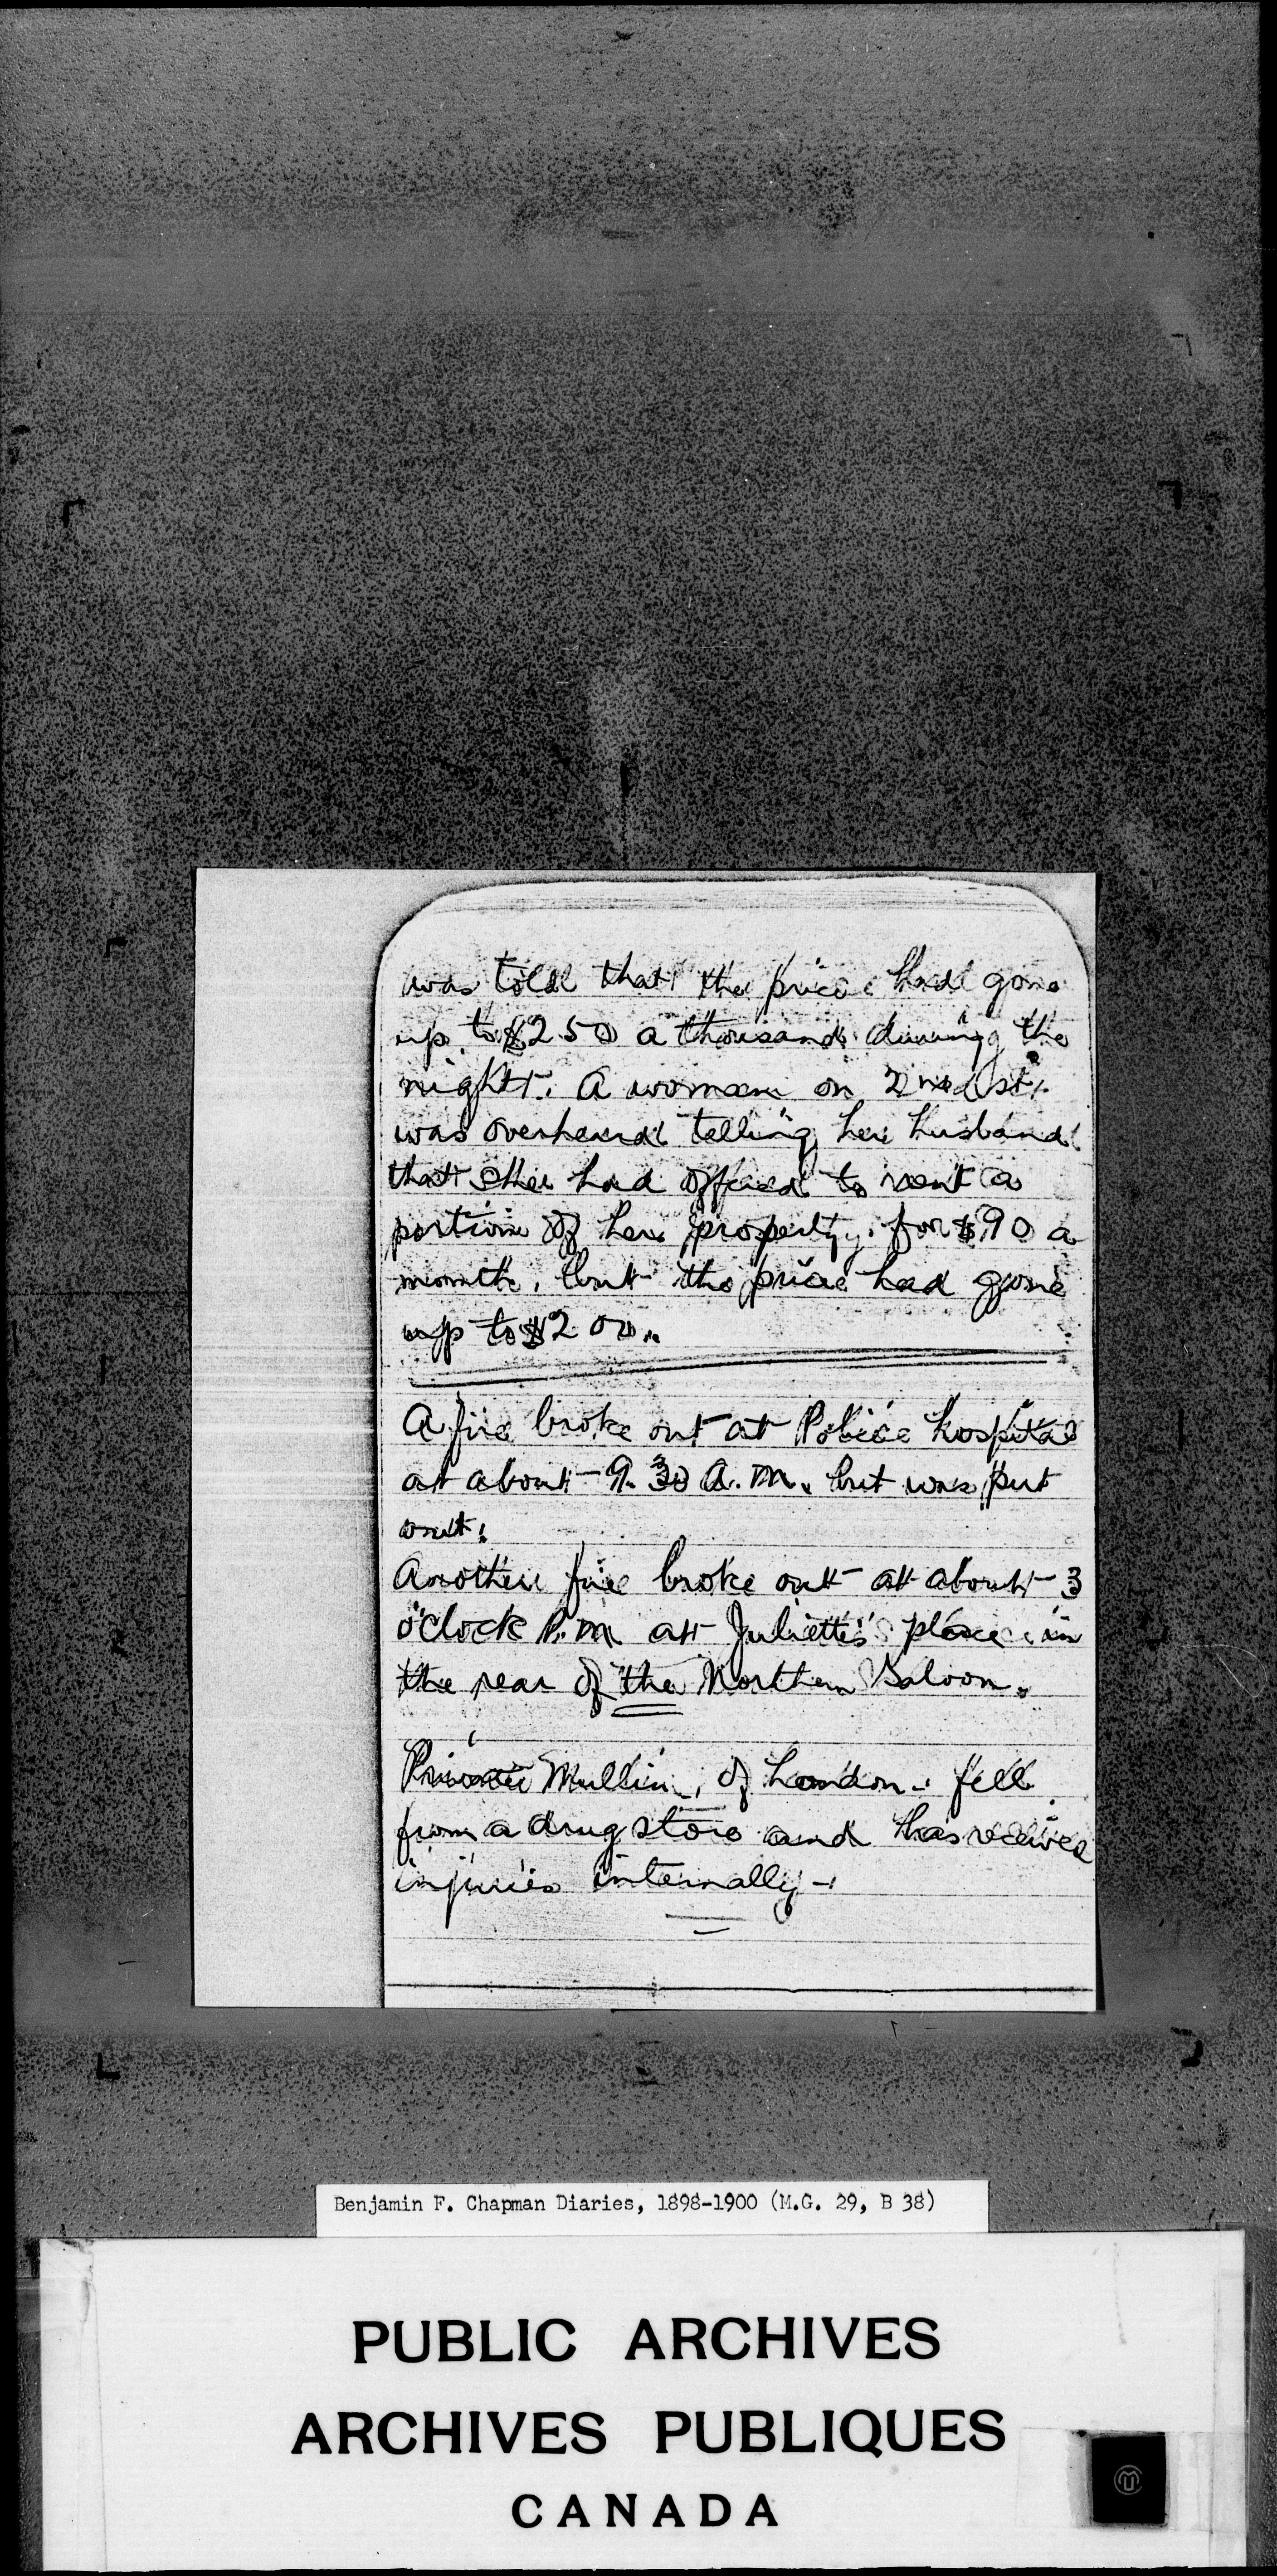 was told that the price had gone
up to $250 a thousand during the
night. A woman on 2nd st.
was overheard telling her husband
that she had offered to rent a
portion of her property for $90 a
month, but the price had gone
up to $200.
A fire broke out at Police hospital
at about 9.30 A.M. but was put
out.
Another fire broke out at about 3
o'clock P.M at Juliette's place in
the rear of the Northern Saloon.
Private Mullin, of London - fell
from a drug store and has received
injuries internally -
Benjamin F. Chapman Diaries, 1898-1900 (M.G. 29, B 38)
PUBLIC ARCHIVES
ARCHIVES PUBLIQUES
CANADA